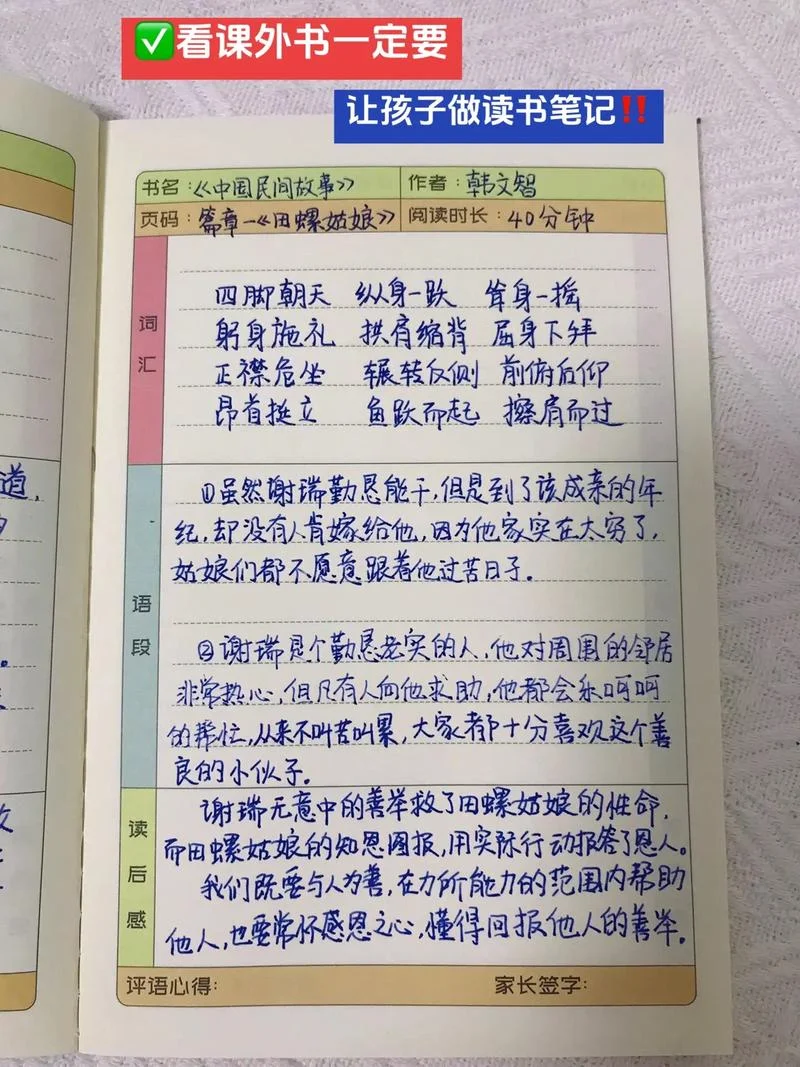 ✅看课外书一定要
让孩子做读书笔记‼️
书名:《中国民间故事》 作者:韩文智
页码:篇章一《田螺姑娘》 阅读时长:40分钟
词汇
四脚朝天 纵身一跃 耸身一摇
躬身施礼 拱肩缩背 屈身下拜
正襟危坐 辗转反侧 前俯后仰
昂首挺立 鱼跃而起 擦肩而过
语段
①虽然谢瑞勤恳能干,但是到了该成亲的年
纪,却没有人肯嫁给他,因为他家实在太穷了,
姑娘们都不愿意跟着他过苦日子。
②谢瑞是个勤恳老实的人,他对周围的邻居
非常热心,但凡有人向他求助,他都会乐呵呵
的帮忙,从来不叫苦叫累,大家都十分喜欢这个善
良的小伙子。
读后感
谢瑞无意中的善举救了田螺姑娘的性命,
而田螺姑娘的知恩图报,用实际行动报答了恩人。
我们既要与人为善,在力所能力的范围内帮助
他人,也要常怀感恩之心,懂得回报他人的善举。
评语心得: 家长签字:
道,